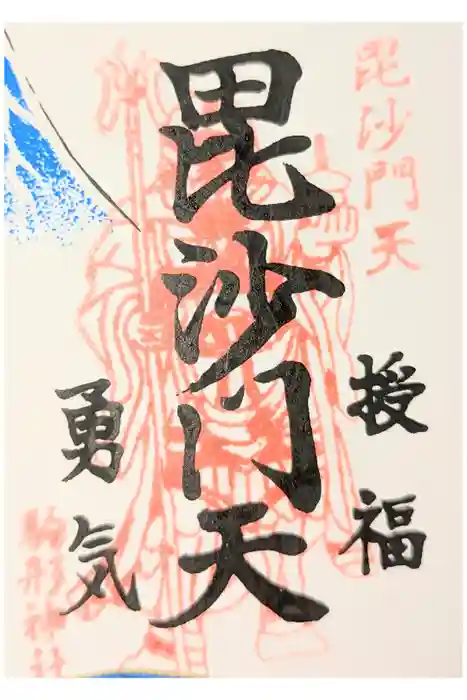 毘沙門天
授福
毘沙門天
勇気
駒形神社